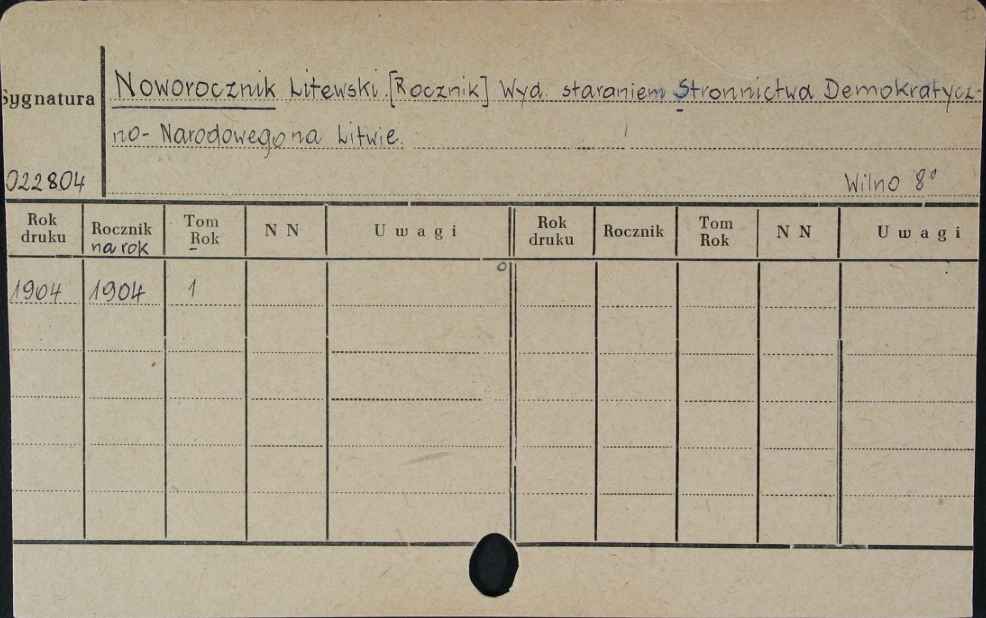 Sygnatura
Noworocznik Litewski. [Rocznik] Wyd. staraniem Stronnictwa Demokratycz-
no-Narodowego na Litwie.
022804
Wilno 8°
Rok druku
Rocznik na rok
Tom Rok
N N
Uwagi
Rok druku
Rocznik
Tom Rok
N N
Uwagi
1904 1904 1